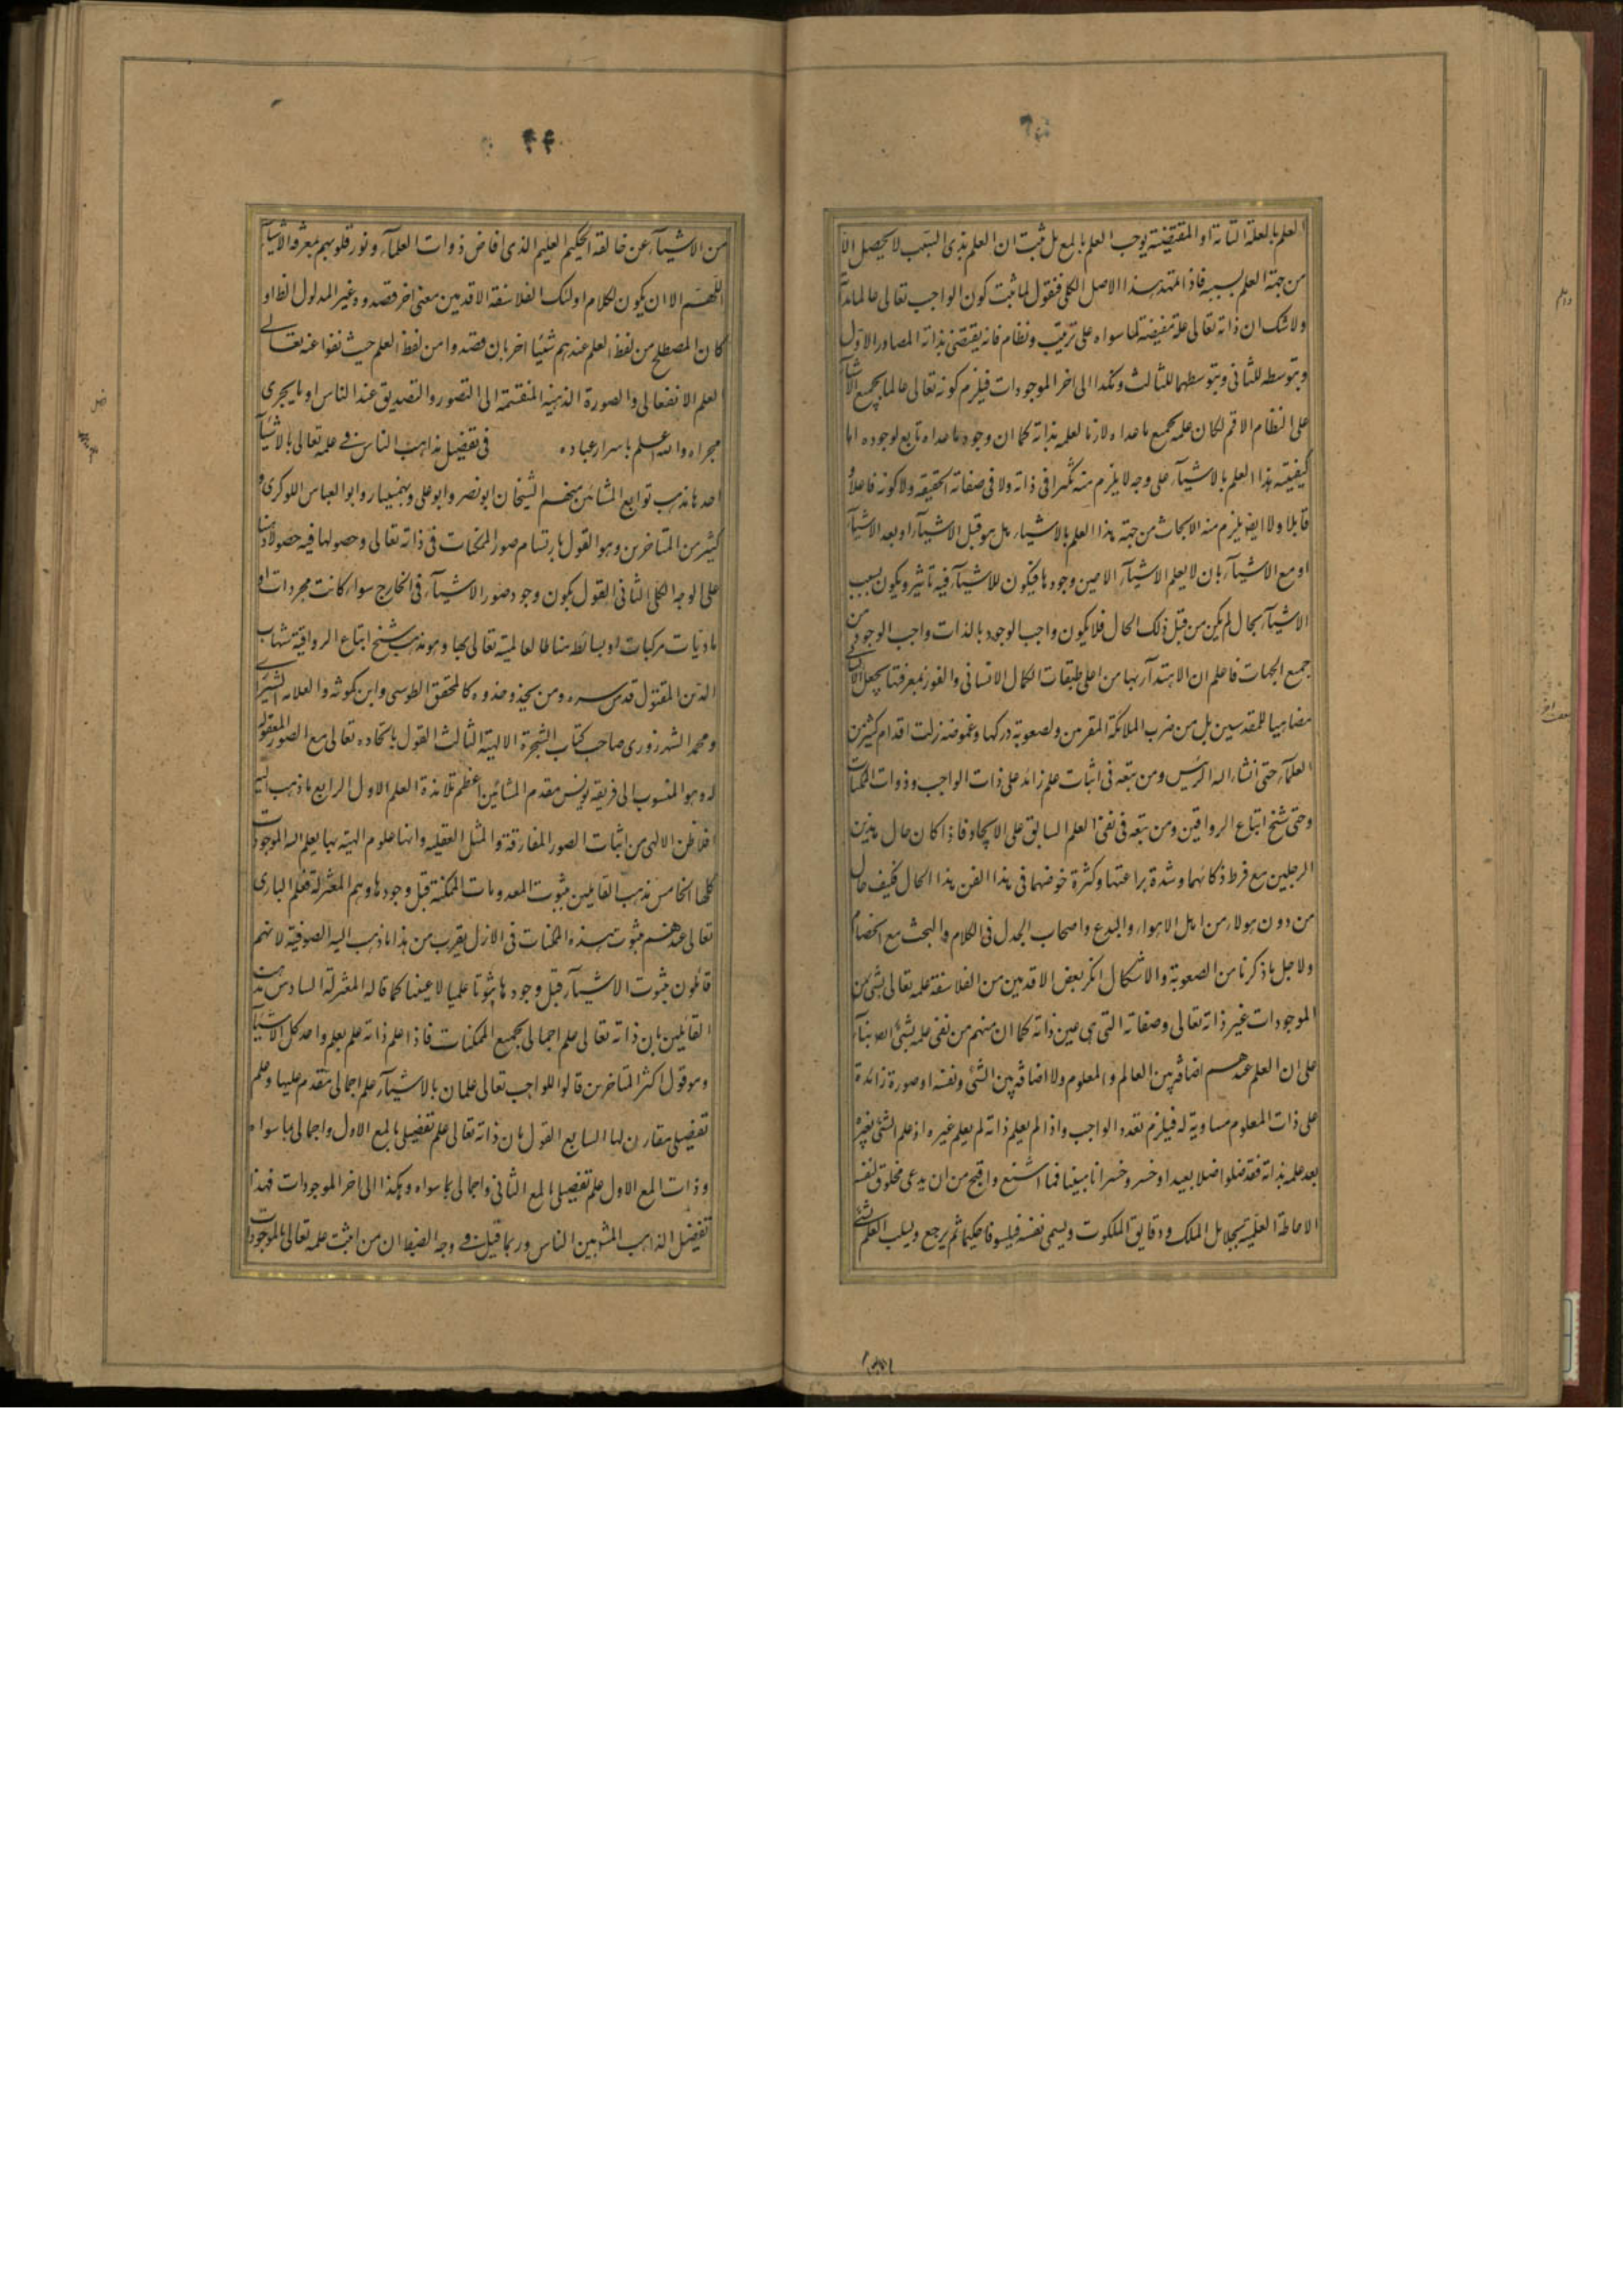 العلم بالعلة التامة او المقتضية يوجب العلم بالمع بل ثبت ان العلم بذى السبب لا يحصل الا
من جهة العلم بسببه فاذا تمهد هذا الاصل الكلى فنقول لما ثبت كون الواجب تعالى عالما بذاته
ولا شك ان ذاته تعالى علة مفيضة لما سواه على ترتيب ونظام فانه يقتضى بذاته الصادر الاول
وبتوسطه للثانى وبتوسطهما للثالث وهكذا الى اخر الموجودات فيلزم كونه تعالى عالما بجميع الاشيآء
على النظام الاتم لكان علمه بجميع ما عداه لازما لعلمه بذاته كما ان وجود ما عداه تابع لوجوده اما
كيفيته هذا العلم بالاشيآء على وجه لا يلزم منه تكثرا فى ذاته ولا فى صفاته الحقيقه ولا كونه فاعلا و
قابلا ولا ايض يلزم منه الايجاب من جهة هذا العلم بالاشياء بل هو قبل الاشيآء او بعد الاشيآء
او مع الاشيآء بان لا يعلم الاشيآء الا حين وجودها فيكون للاشيآء فيه تاثير ويكون بسبب
الاشيآء بحال لم يكن من قبل ذلك الحال فلا يكون واجب الوجود بالذات واجب الوجود من
جميع الجهات فاعلم ان الاهتدآء بها من اعلى طبقات الكمال الانسانى والفوز بمعرفتها يجعل الانسان
مضاهيا للمقدسين بل من ضرب الملائكة المقربين ولصعوبة دركها وغموضه زلت اقدام كثير من
العلمآء حتى الرئيس ومن تبعه فى اثبات علم زائد على ذات الواجب وذوات الممكنات
وحتى شيخ اتباع الرواقين ومن تبعه فى نفى العلم السابق على الايجاد فاذا كان حال هذين
الرجلين مع فرط ذكائهما وشدة براعتهما وكثرة خوضهما فى هذا الفن هذا الحال فكيف حال
من دون هولاء من اهل الاهواء والبدع واصحاب الجدل فى الكلام والبحث مع الخصام
ولاجل ما ذكرنا من الصعوبة والاشكال انكر بعض الاقدمين من الفلاسفة علمه تعالى بشئ من
الموجودات غير ذاته تعالى وصفاته التى هى عين ذاته كما ان منهم من نفى علمه بشئ اصلا بنآء
على ان العلم عندهم اضافة بين العالم والمعلوم ولا اضافة بين الشئ ونفسه او صورة زائدة
على ذات المعلوم مساوية له فيلزم تعدد الواجب واذا لم يعلم ذاته لم يعلم غيره اذ علم الشئ بغيره
بعد علمه بذاته فقد ضلوا ضلالا بعيدا وخسروا خسرانا مبينا فما اشنع واقبح من ان يدعى مخلوق لنفسه
الاحاطة العلمية بجلايل الملك ودقايق الملكوت ويسمى نفسه فيلسوفا حكيما ثم يرجع ويسلب العلم بشئ
۴۴
من الاشيآء عن خالقه الحكيم العليم الذى افاض ذوات العلمآء ونور قلوبهم بمعرفة الاشيآء
اللهم الا ان يكون لكلام اولئك الفلاسفة الاقدمين معنى اخر قصدوه غير المدلول الظ او
كان المصطلح من لفظ العلم عندهم شيئا اخر بان قصدوا من لفظ العلم حيث نفوا عنه تعالى
العلم الانفعالى والصورة الذهنية المنقسمة الى التصور والتصديق عند الناس او ما يجرى
مجراه والله اعلم باسرار عباده فى تفصيل مذاهب الناس فى علمه تعالى بالاشيآء
احدها مذهب توابع المشائين منهم الشيخان ابو نصر وابو على وبهمنيار وابو العباس اللوكرى و
كثير من المتاخرين وهو القول بارتسام صور الممكنات فى ذاته تعالى وحصولها فيه حصولا ذهنيا
على الوجه الكلى الثانى القول بكون وجود صور الاشيآء فى الخارج سواء كانت مجردات او
ماديات مركبات او بسائط مناطا لعالميته تعالى بها وهو مذهب شيخ اتباع الرواقية شهاب
الدين المقتول قدس سره ومن يحذو حذوه كالمحقق الطوسى وابن كمونه والعلامه الشيرازى
ومحمد الشهرزورى صاحب كتاب الشجرة الالهية الثالث القول باتحاده تعالى مع الصور المعقوله
له وهو المنسوب الى فرفريوس مقدم المشائين اعظم تلامذة المعلم الاول الرابع ما ذهب اليه
افلاطن الالهى من اثبات الصور المفارقة والمثل العقليه وانها علوم الهية بها يعلم الله الموجودات
كلها الخامس مذهب القايلين بثبوت المعدومات الممكنة قبل وجودها وهم المعتزلة فعلم البارى
تعالى عندهم بثبوت هذه الممكنات فى الازل يقرب من هذا ما ذهب اليه الصوفية لانهم
قائلون بثبوت الاشيآء قبل وجودها ثبوتا علميا لا عينيا كما قاله المعتزلة السادس مذهب
القائلين بان ذاته تعالى علم اجمالى بجميع الممكنات فاذا علم ذاته علم بعلم واحد كل الاشيآء
وهو قول اكثر المتاخرين قالوا للواجب تعالى علمان بالاشيآء علم اجمالى متقدم عليها وعلم
تفصيلى مقارن لها السابع القول بان ذاته تعالى علم تفصيلى بالمع الاول واجمالى بما سواه
وذات المع الاول علم تفصيلى بالمع الثانى واجمالى بما سواه وهكذا الى اخر الموجودات فهذا
تفصيل المذاهب المشهورة بين الناس وربما قيل فى وجه الضبط ان من اثبت علمه تعالى بالموجودات